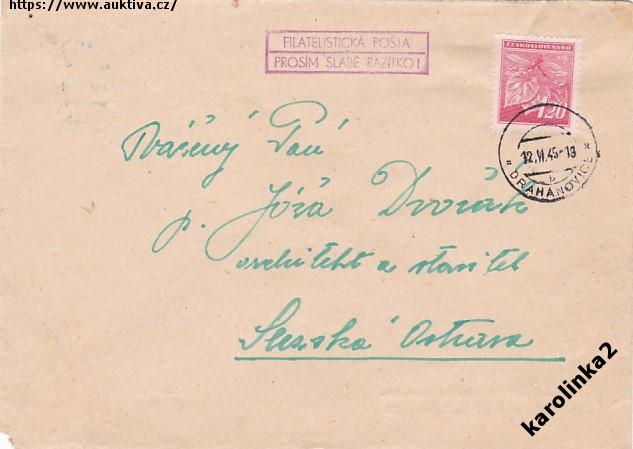 https://www.auktiva.cz/
FILATELISTICKÁ POŠTA
PROSÍM SLABÉ RAZÍTKO!
ČESKOSLOVENSKO
1.20
12.VI.45-18
b
* DRAHANOVICE *
Vážený Pan
p. Jóža Dvořák
architekt a stavitel
Slezská Ostrava
karolinka2